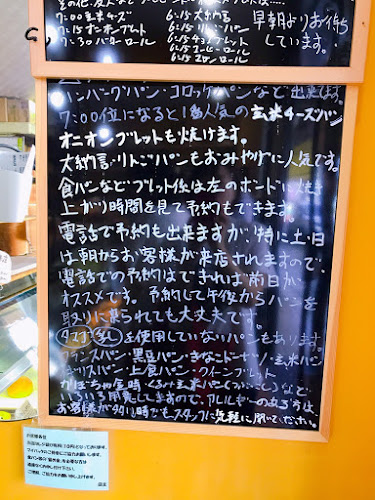 7:00 玄米チーズ
7:15 オニオンブレット
7:30 バターロール
6:15 大納言
6:15 チョコブレット
6:15 コーヒーロール
6:15 メロンロール
早朝よりお待ち
しています。
ハンバーグパン・コロッケパンなど出来てます。
7:00位になると1番人気の玄米チーズパン
オニオンブレットも焼けます。
大納言・りんごパンもおみやげに人気です。
食パンなどブレット後は左のボードに焼き
上がり時間を見て予約もできます。
電話で予約も出来ますが、特に土・日
は朝からお客様が来店されますので、
電話での予約はできれば前日が
オススメです。予約して午後からパンを
取りに来られても大丈夫です。
タマゴ・乳を使用していないパンもあります。
フランスパン・黒豆パン・きなこドーナツ・玄米パン
イギリスパン・上食パン・クイーンブレット
かぼちゃ金時・くるみ玄米パン(つぶあんこし)など
いろいろ用意してますので、アレルギーのある方は、
お客様が多い時でもスタッフに気軽に聞いてください。
お客様各位
店主